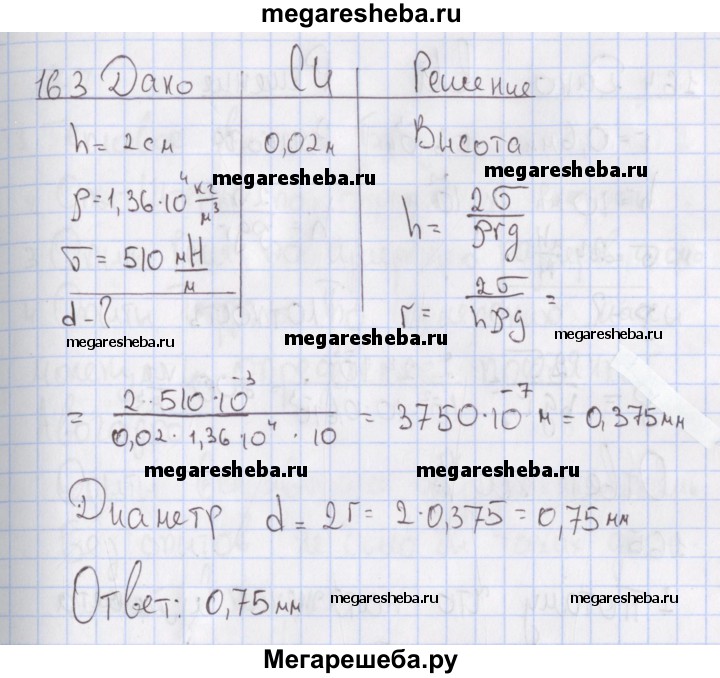 megaresheba.ru
163 Дано СИ Решение
h = 2 см 0,02 м Высота
megaresheba.ru megaresheba.ru
ρ = 1,36·10⁴ кг/м³ h = 2σ/ρrg
σ = 510 мН/м
d - ? r = 2σ/hρg =
megaresheba.ru megaresheba.ru megaresheba.ru
= 2·510·10⁻³/0,02·1,36·10⁴·10 = 3750·10⁻⁷ м = 0,375 мм
megaresheba.ru megaresheba.ru
Диаметр d = 2r = 2·0,375 = 0,75 мм
Ответ: 0,75 мм megaresheba.ru megaresheba.ru
Мегарешеба.ру